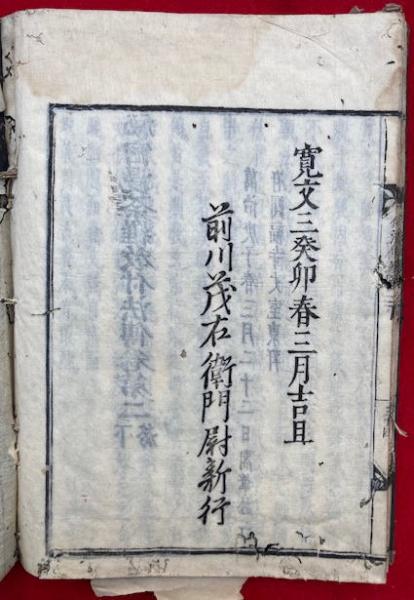 寛文三癸卯春三月吉且
前川茂右衛門尉新行